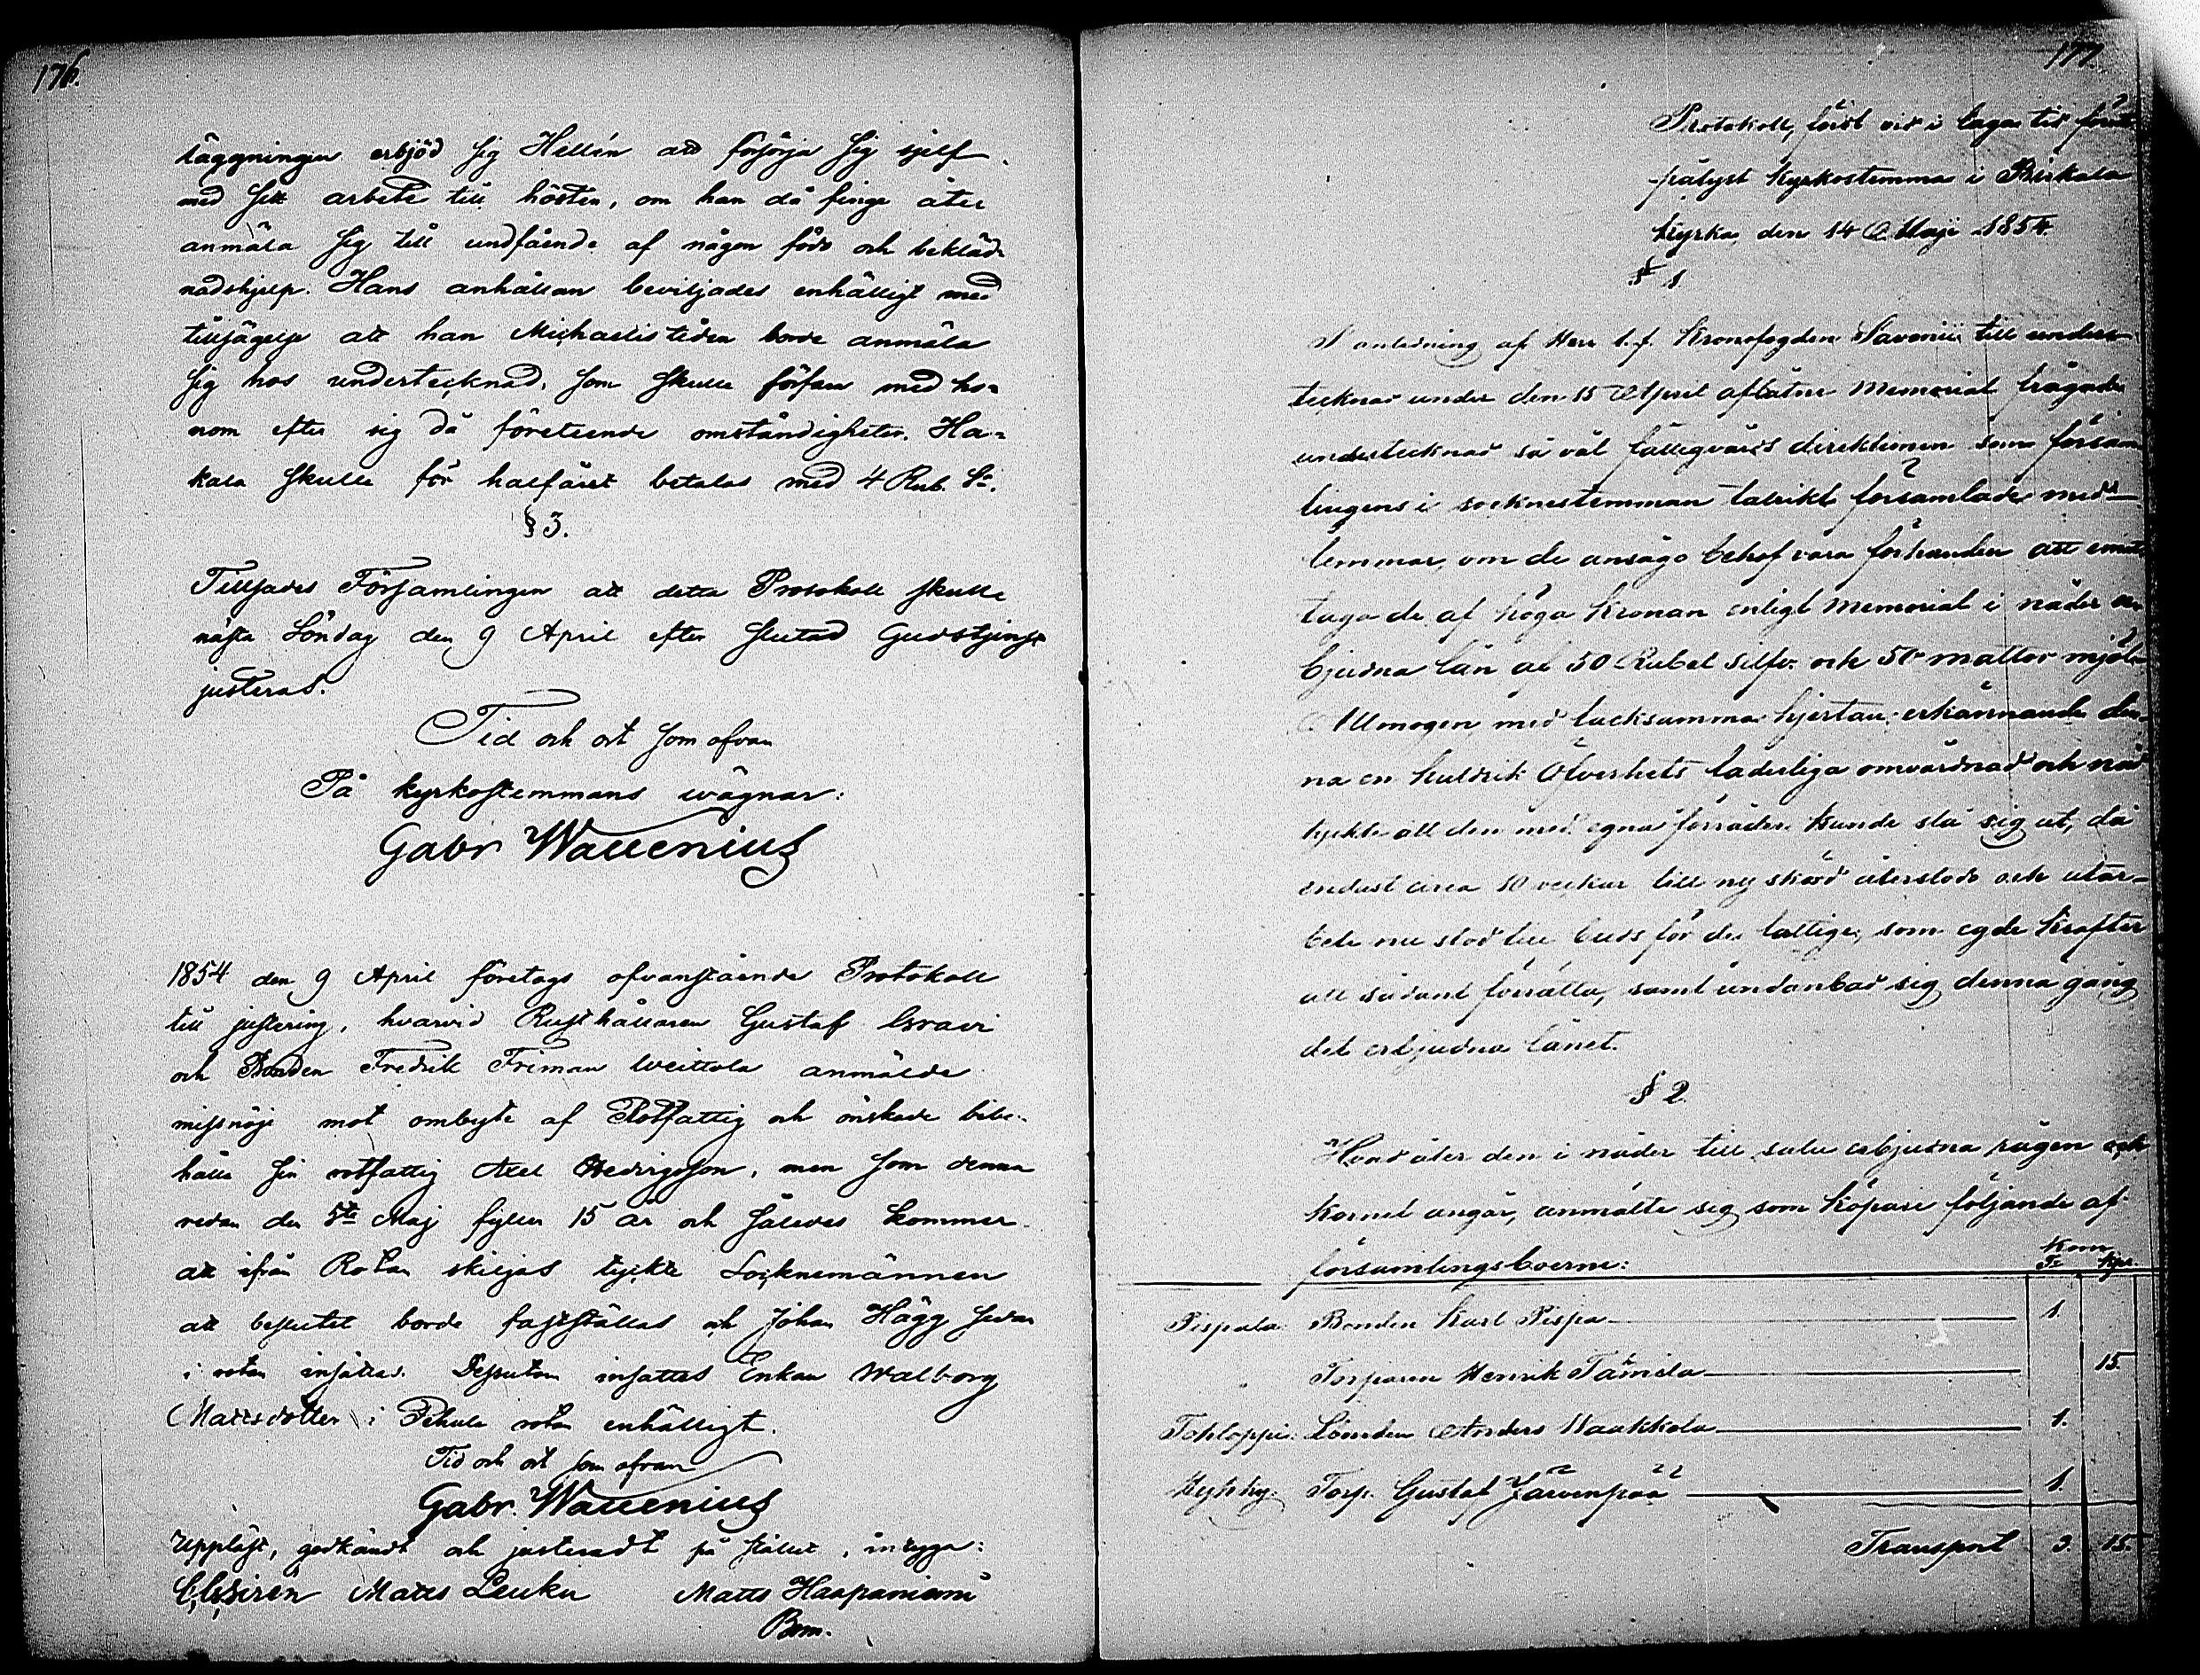 176.
läggningen erbjöd sig Hellén att försörja sig sjelf
med sitt arbete till hösten, om han då finge åter
anmäla sig till undfående af någon föda och bekläd-
nadshjelp. Hans anhållan beviljades enhälligt med
tillsägelse att han Michaelistiden borde anmäla
sig hos undertecknad, som skulle förfara med ho-
nom efter sig då företeende omständigheter. Ha-
kala skulle för halfåret betalas med 4 Rub. Sr.
§ 3.
Tillsades Församlingen att detta Protokoll skulle
nästa Söndag den 9 April efter slutad Gudstjenst
justeras.
Tid och ort som ofvan
På kyrkostemmans wägnar:
Gabr Wallenius
1854 den 9 April företogs ofvanstående Protokoll
till justering, hvarvid Rusthållaren Gustaf
och Bonden Fredrik Friman Weittola anmälde
missnöje mot ombyte af Rotfattig och önskade bibe-
hålla sin rotfattig Axel Hedrigsson, men som denna
redan den 5te Maj fyller 15 år och således kommer
att ifrån Rotan skiljas tyckte Socknemännen
att beslutet borde fastställas och Johan Hägg sedan
i rotan insättas. Dessutom insattes Enkan Walborg
Mattsdotter i Pehula rota enhälligt.
Tid och ort som ofvan
Gabr. Wallenius
Uppläst, godkändt och justeradt på stället, intyga:
Matts Leuku Matts Haapaniemi
Bom.
177
Protokoll, fördt vid i laga tid förut
pålyst Kyrkostemma i Birkala
kyrka, den 14 Maji 1854.
§ 1
I anledning af Herr t.f. Kronofogden Savonii till under-
tecknad under den 15 April aflåtne Memorial frågade
undertecknad så väl fattigvårds direktionen som försam-
lingens i socknestemman talrikt församlade med-
lemmar, om de ansågo behof vara förhanden att emot-
taga de af höga Kronan enligt Memorial i nåder er-
bjudna lån af 50 Rubel Silfv. och 50 mattor mjöl.
Allmogen med tacksamma hjertan erkännande den-
na en huldrik Öfverhets faderliga omvårdnad och nåd
tyckte att den med egna förråder kunde slå sig ut, då
endast circa 10 veckor till ny skörd återstodo och utar-
bete nu stod till buds för de fattige, som egde krafter
att sådant förrätta, samt undanbad sig denna gång
det erbjudna lånet.
§ 2.
Hvad åter den i nåder till salu erbjudna rågen och
kornet angår, anmälte sig som köpare följande af
församlingsboerne:
Korn
Tr Kpr
Pispala: Bonden Karl Pispa 1.
Torparen Henrik Tamila 15.
Tohloppi: Bonden Anders Kaakkola 1.
Hyhky: Torp. Gustaf Järvenpää 1.
Transport 3. 15.